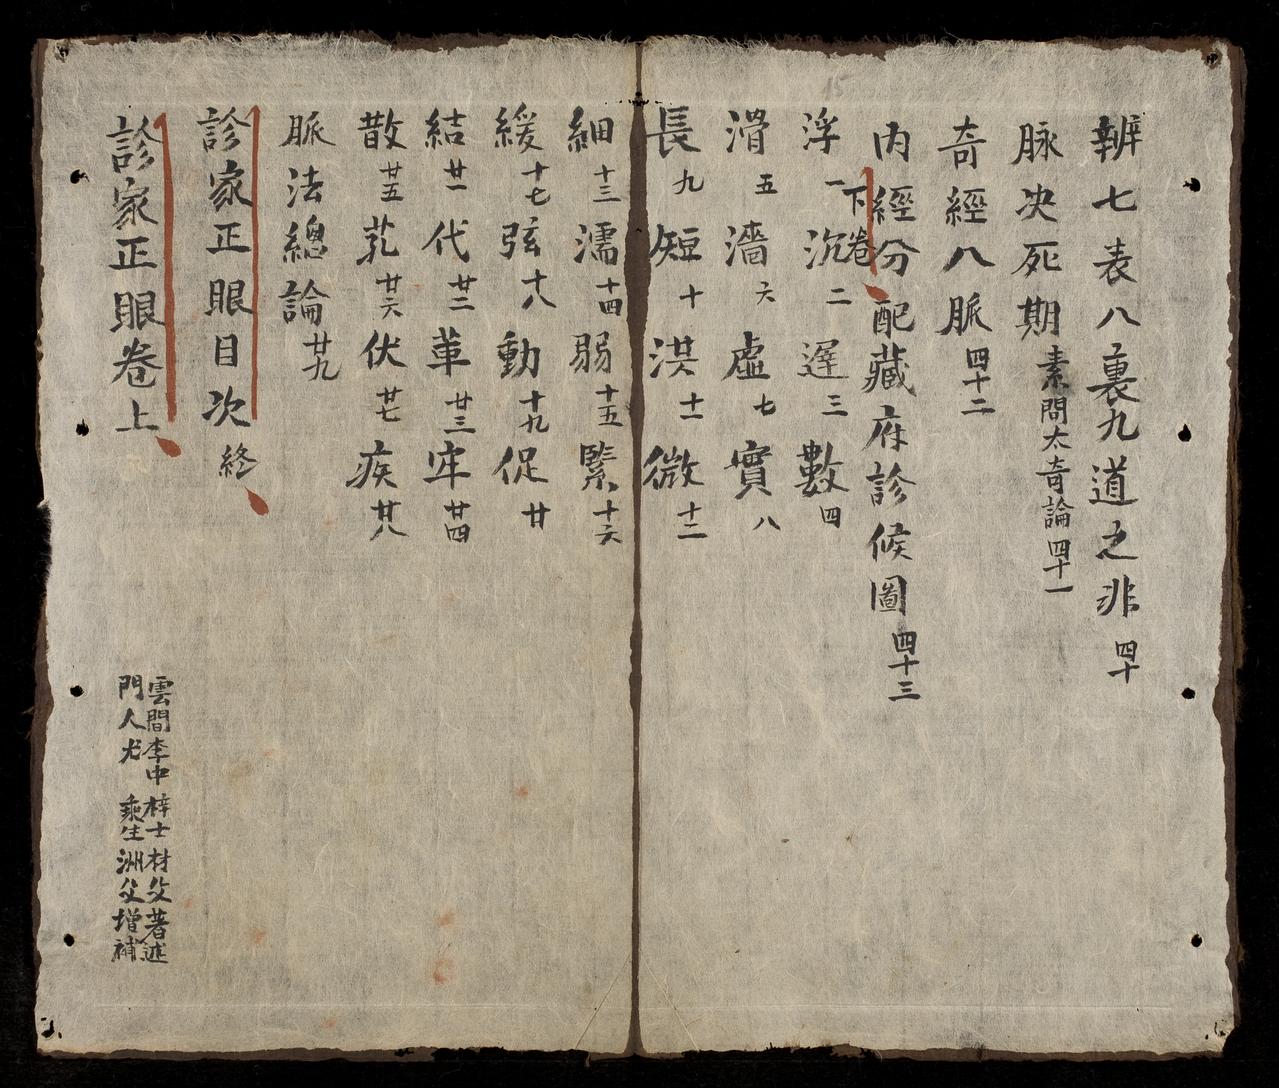 辨七表八裏九道之非 四十
脉决死期 素問太奇論 四十一
奇經八脈 四十二
内經分配藏府診候圖 四十三
下卷
浮 一 沉 二 遲 三 數 四
滑 五 濇 六 虛 七 實 八
長 九 短 十 洪 十一 微 十二
細 十三 濡 十四 弱 十五 緊 十六
緩 十七 弦 十八 動 十九 促 廿
結 廿一 代 廿二 革 廿三 牢 廿四
散 廿五 芤 廿六 伏 廿七 疾 廿八
脈法總論 廿九
診家正眼目次 終
診家正眼卷上
雲間李中梓士材父著述
門人尤乘生洲父增補
15